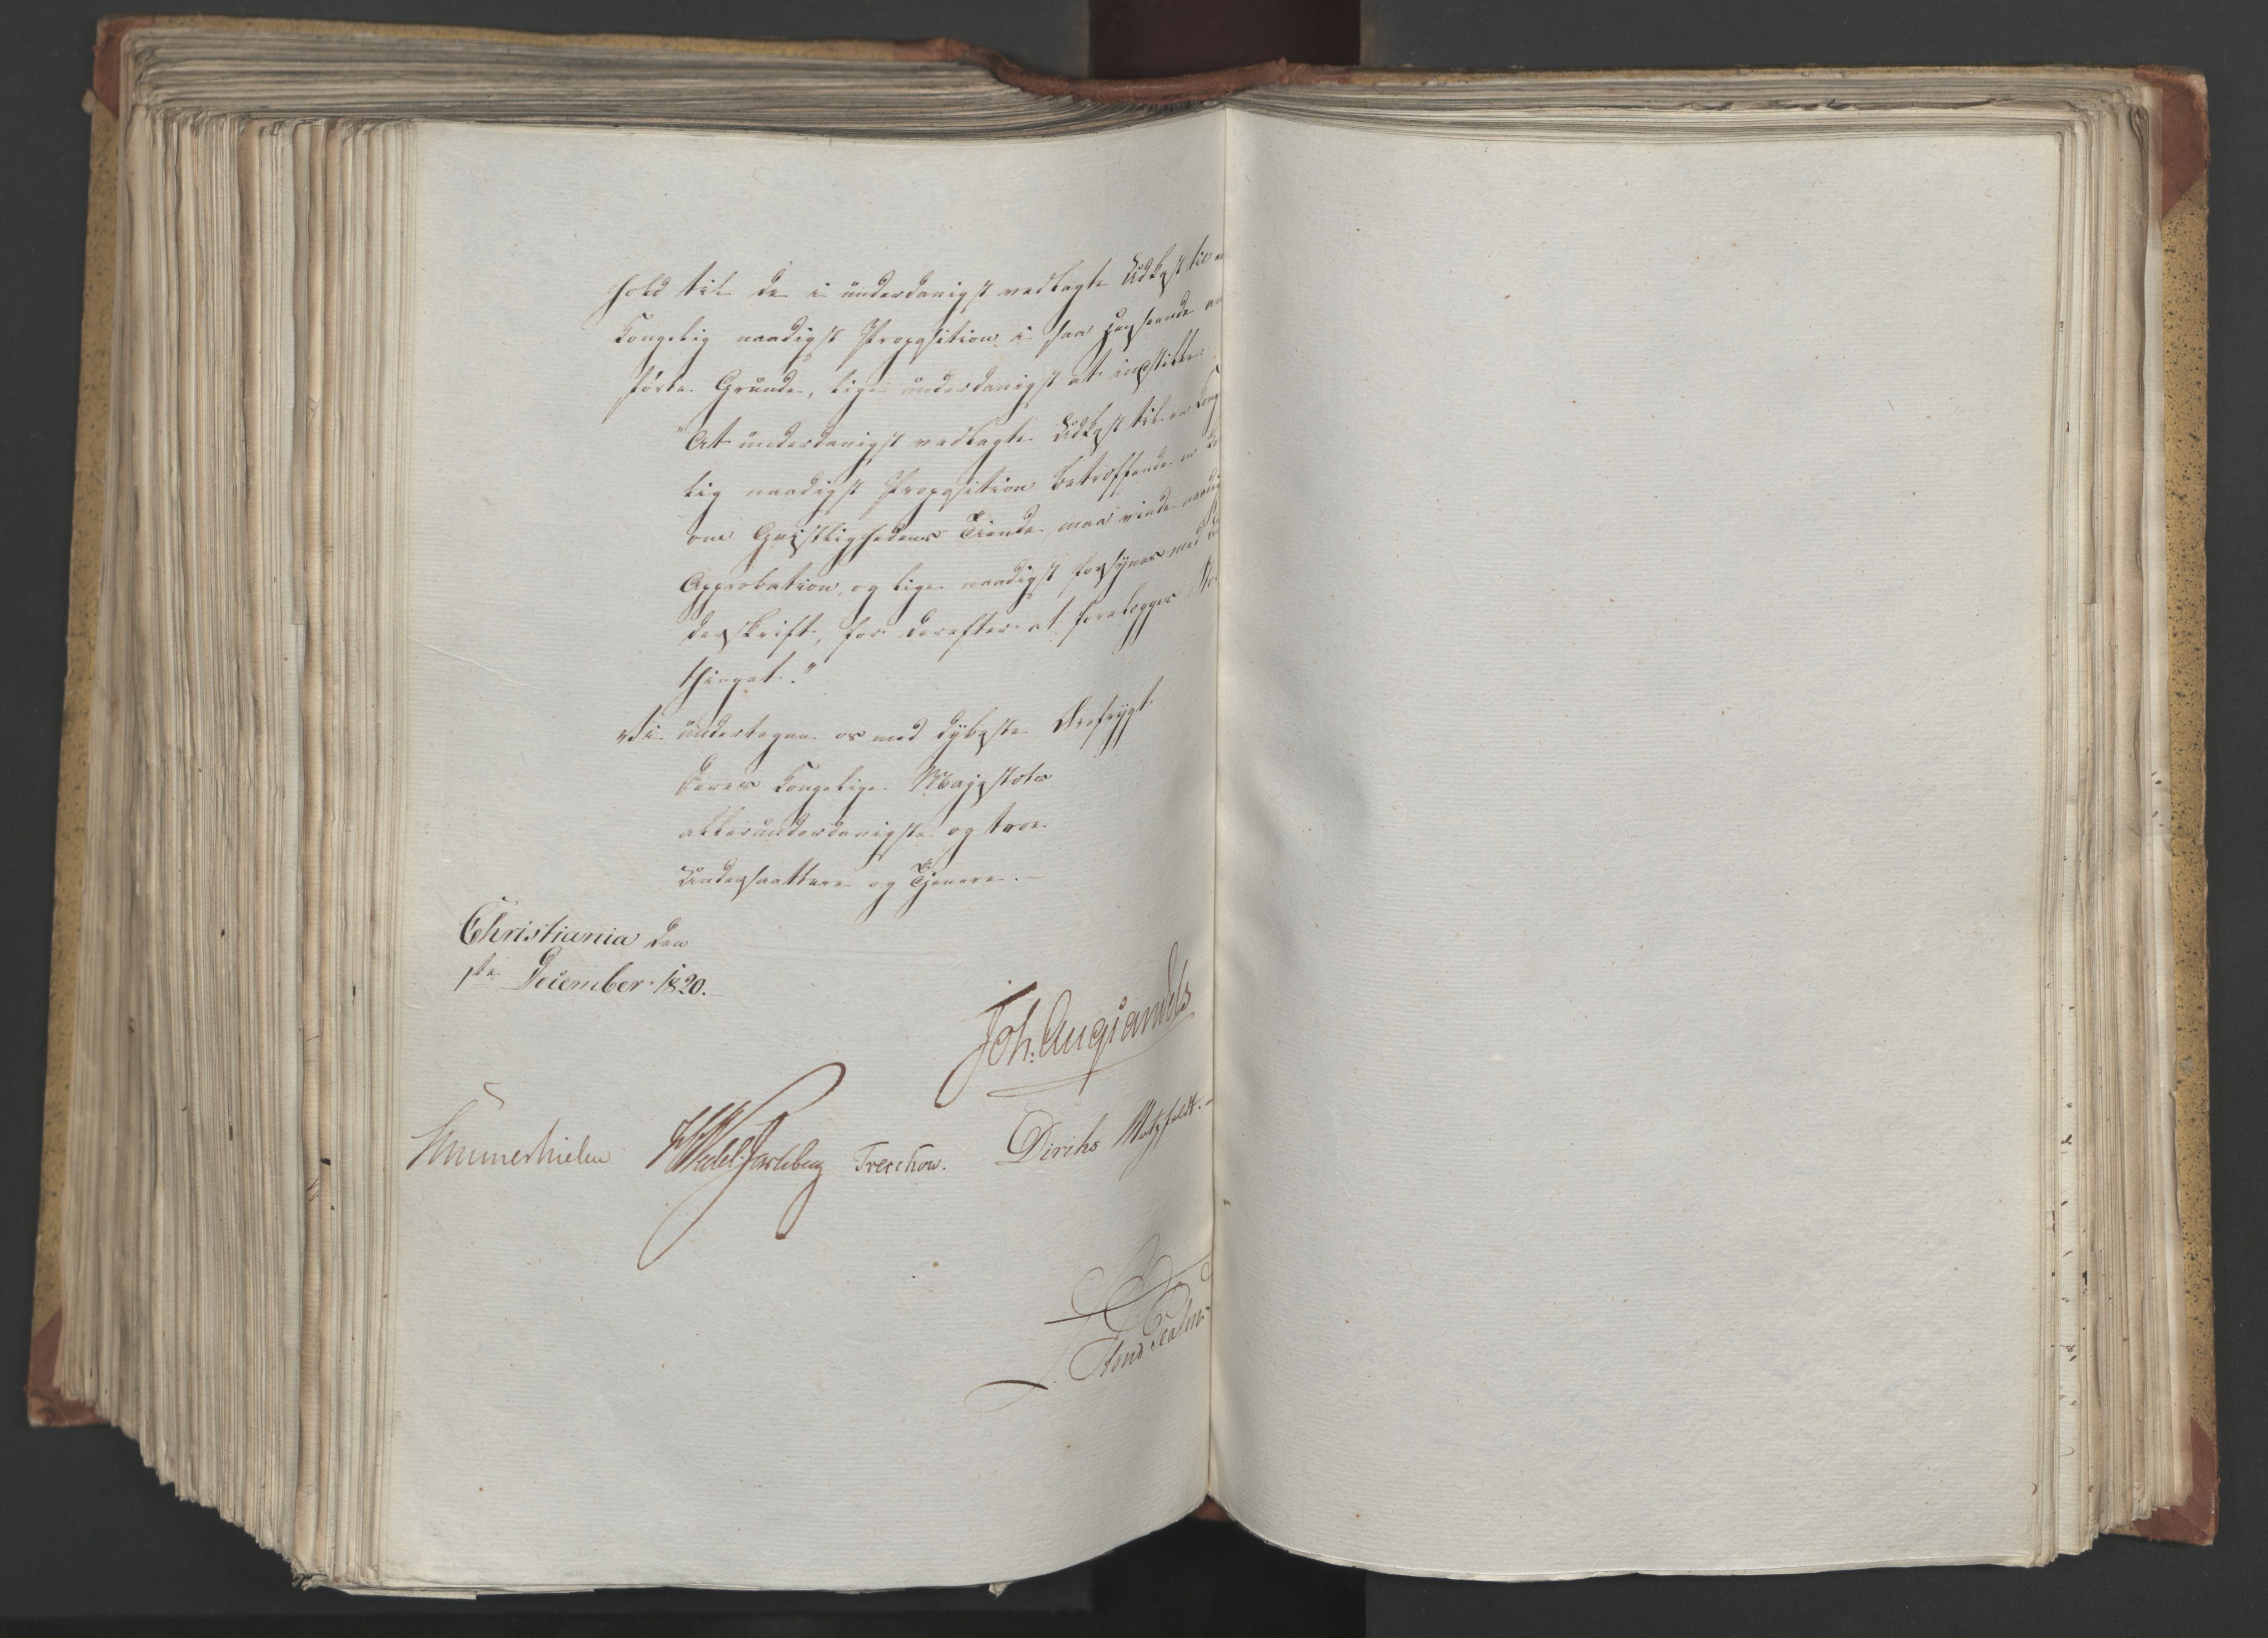 hold til de i underdanigst vedlagte Udkast til en
Kongelig naadigst Proposition i saa Henseende an
førte Grunde, lige underdanigst at indstille:
"At underdanigst vedlagte Udkast til en Kong
lig naadigst Proposition betræffende en
om Geistlighedens Tiende maa vinde naadig
Approbation, og lige naadigst forsynes med Un
derskrift, for derefter at forelægges Stor
thinget."
Vi undertegne os med dybeste Ærefrygt
Deres Kongelige Majestæts
allerunderdanigste og troe
Undersaattere og Tjenere.
Christiania den
1ste December 1820.
Joh: Aug: Sandels
Sommerhielm HWedel Jarlsberg Treschow. Diriks Motzfeldt.